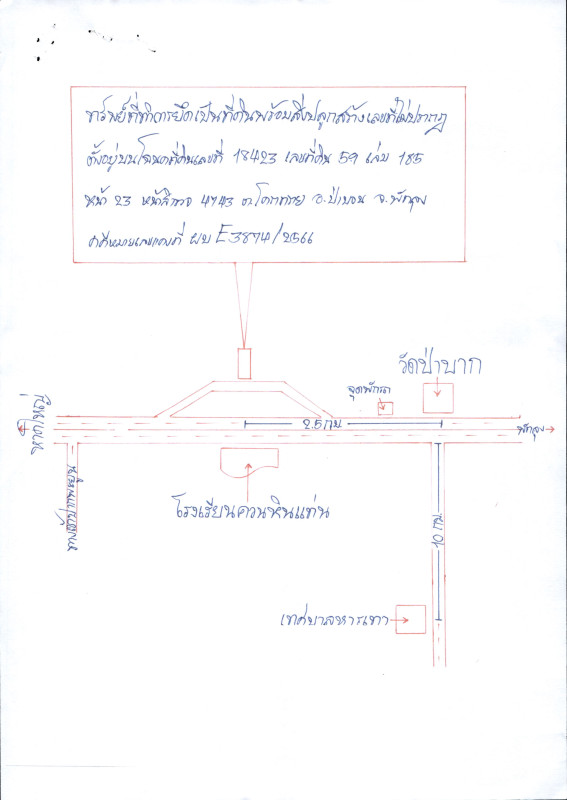 ทรัพย์ที่ทำการยึดเป็นที่ดินพร้อมสิ่งปลูกสร้างเลขที่ไม่ปรากฏ
ตั้งอยู่บนโฉนดที่ดินเลขที่ 18423 เลขที่ดิน 59 เล่ม 185
หน้า 23 หน้าสำรวจ 4743 ต.โคกทราย อ.ป่าบอน จ.พัทลุง
คดีหมายเลขแดงที่ ผบ E3874/2566
วัดป่าบาก
จุดพักรถ
หาดใหญ่
2.5 กม
พัทลุง
โรงเรียนควนหินแท่น
10 กม.
เทศบาลหารเทา